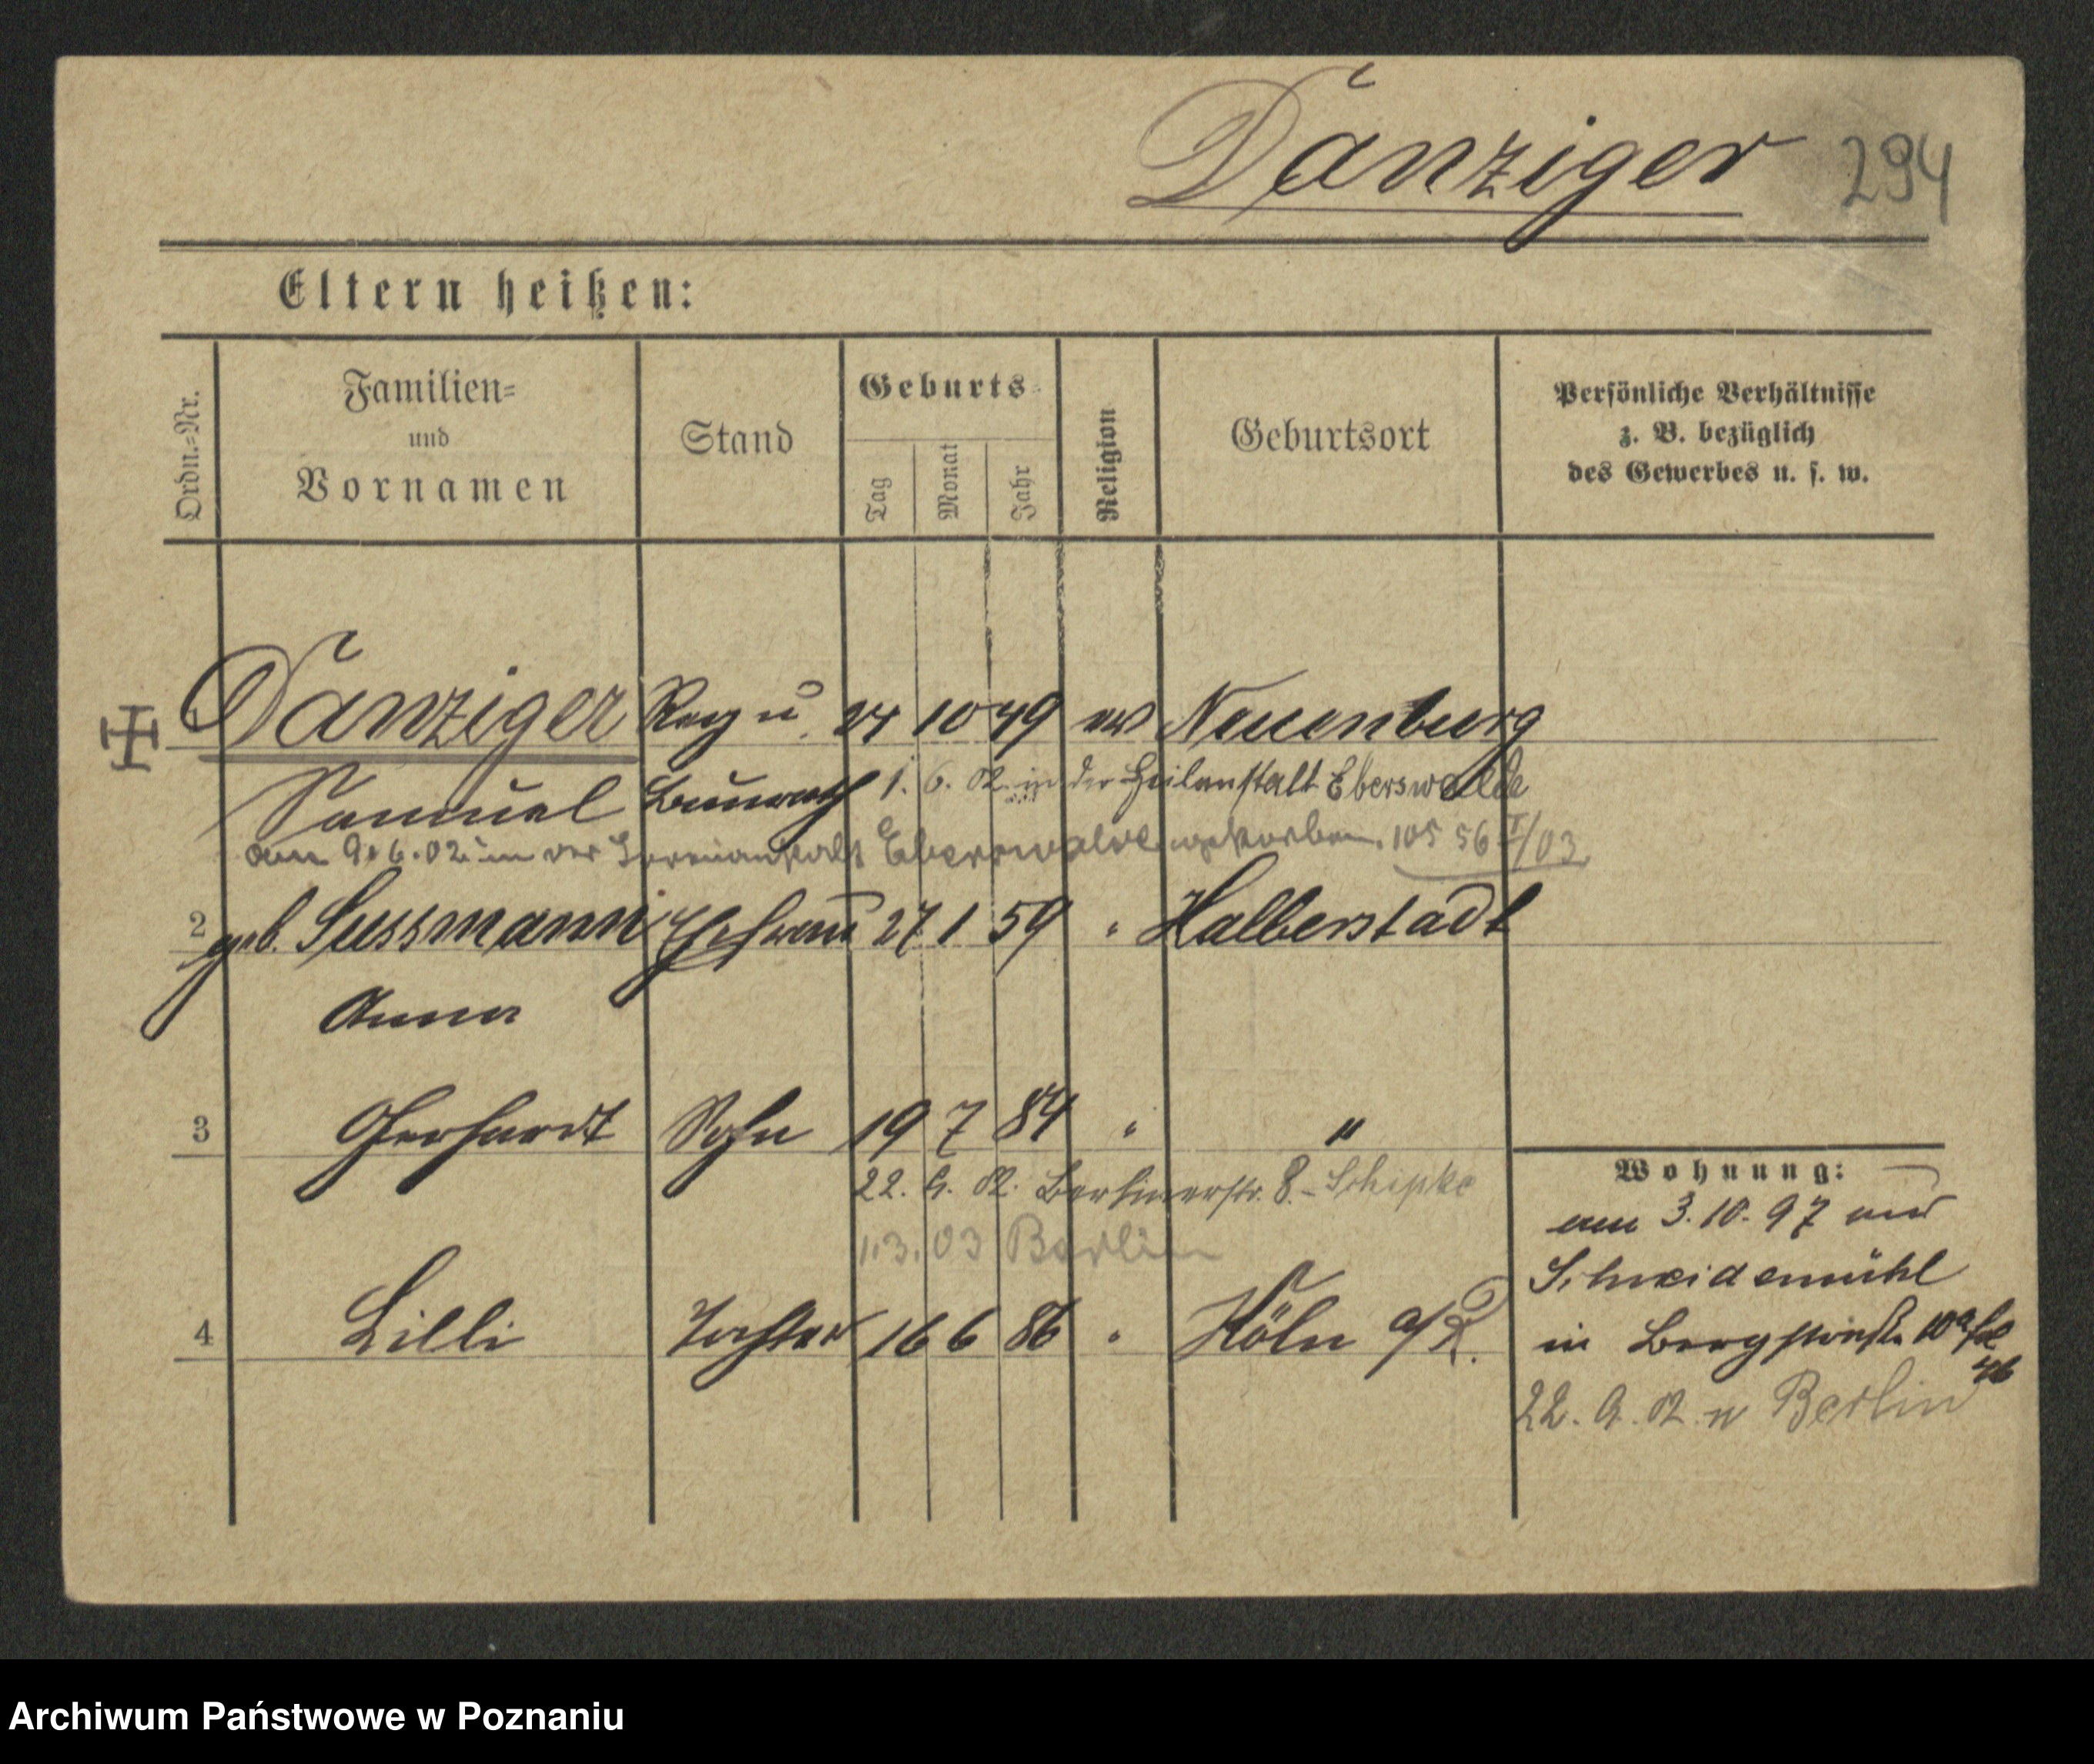 Danziger 294
Eltern heißen:
Ordn.=Nr.
Familien=
und
Vornamen
Stand
Geburts
Tag
Monat
Jahr
Religion
Geburtsort
Persönliche Verhältnisse
z. B. bezüglich
des Gewerbes u. s. w.
Danziger Reg u. 24 10 49 ev Neuenburg
Samuel Baurath 1. 6. 02 in der Heilanstalt Eberswalde
am 9. 6. 02 in der Irrenanstalt Eberswalde gestorben. 105 56 I/03
2 geb. Sussmann Ehefrau 27 1 59 " Halberstadt
Anna
3 Gerhardt Sohn 19 7 84 " "
22. 9. 02. Berlinerstr. 8. - Schipke
1.3.03 Berlin
4 Lilli Tochter 16 6 86 " Köln a/R.
Wohnung:
am 3. 10. 97 aus
Schneidemühl
in Bergstraße 10a
46
22. 9. 02 n Berlin
Archiwum Państwowe w Poznaniu